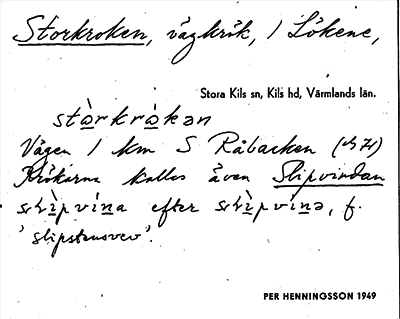 Storkroken, vägkrök, i Lökene,
Stora Kils sn, Kils hd, Värmlands län.
stòrkròkən
Vägen 1 km S Råbacken
Krökarna kallas även Slipvindan
ʃlìpvína efter ʃlìpvínə, f.
'slipstensvev'.
PER HENNINGSSON 1949